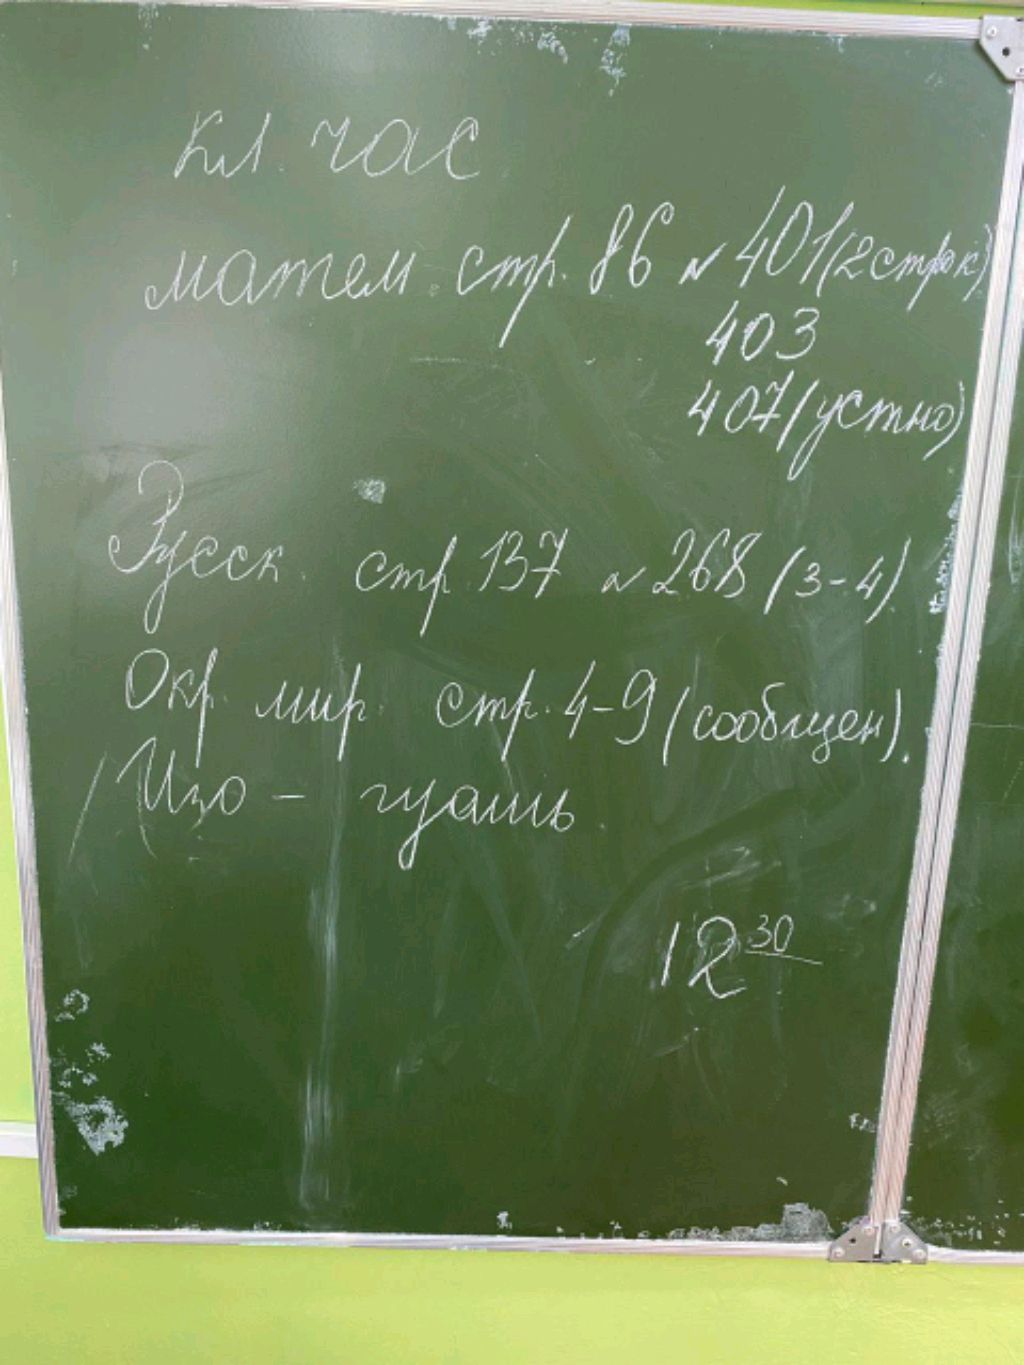 Кл. час
матем. стр. 86 № 401 (2 строк)
403
407 (устно)
Русск. стр. 137 № 268 (3-4)
Окр. мир. стр. 4-9 (сообщен).
Изо - гуашь
12 30